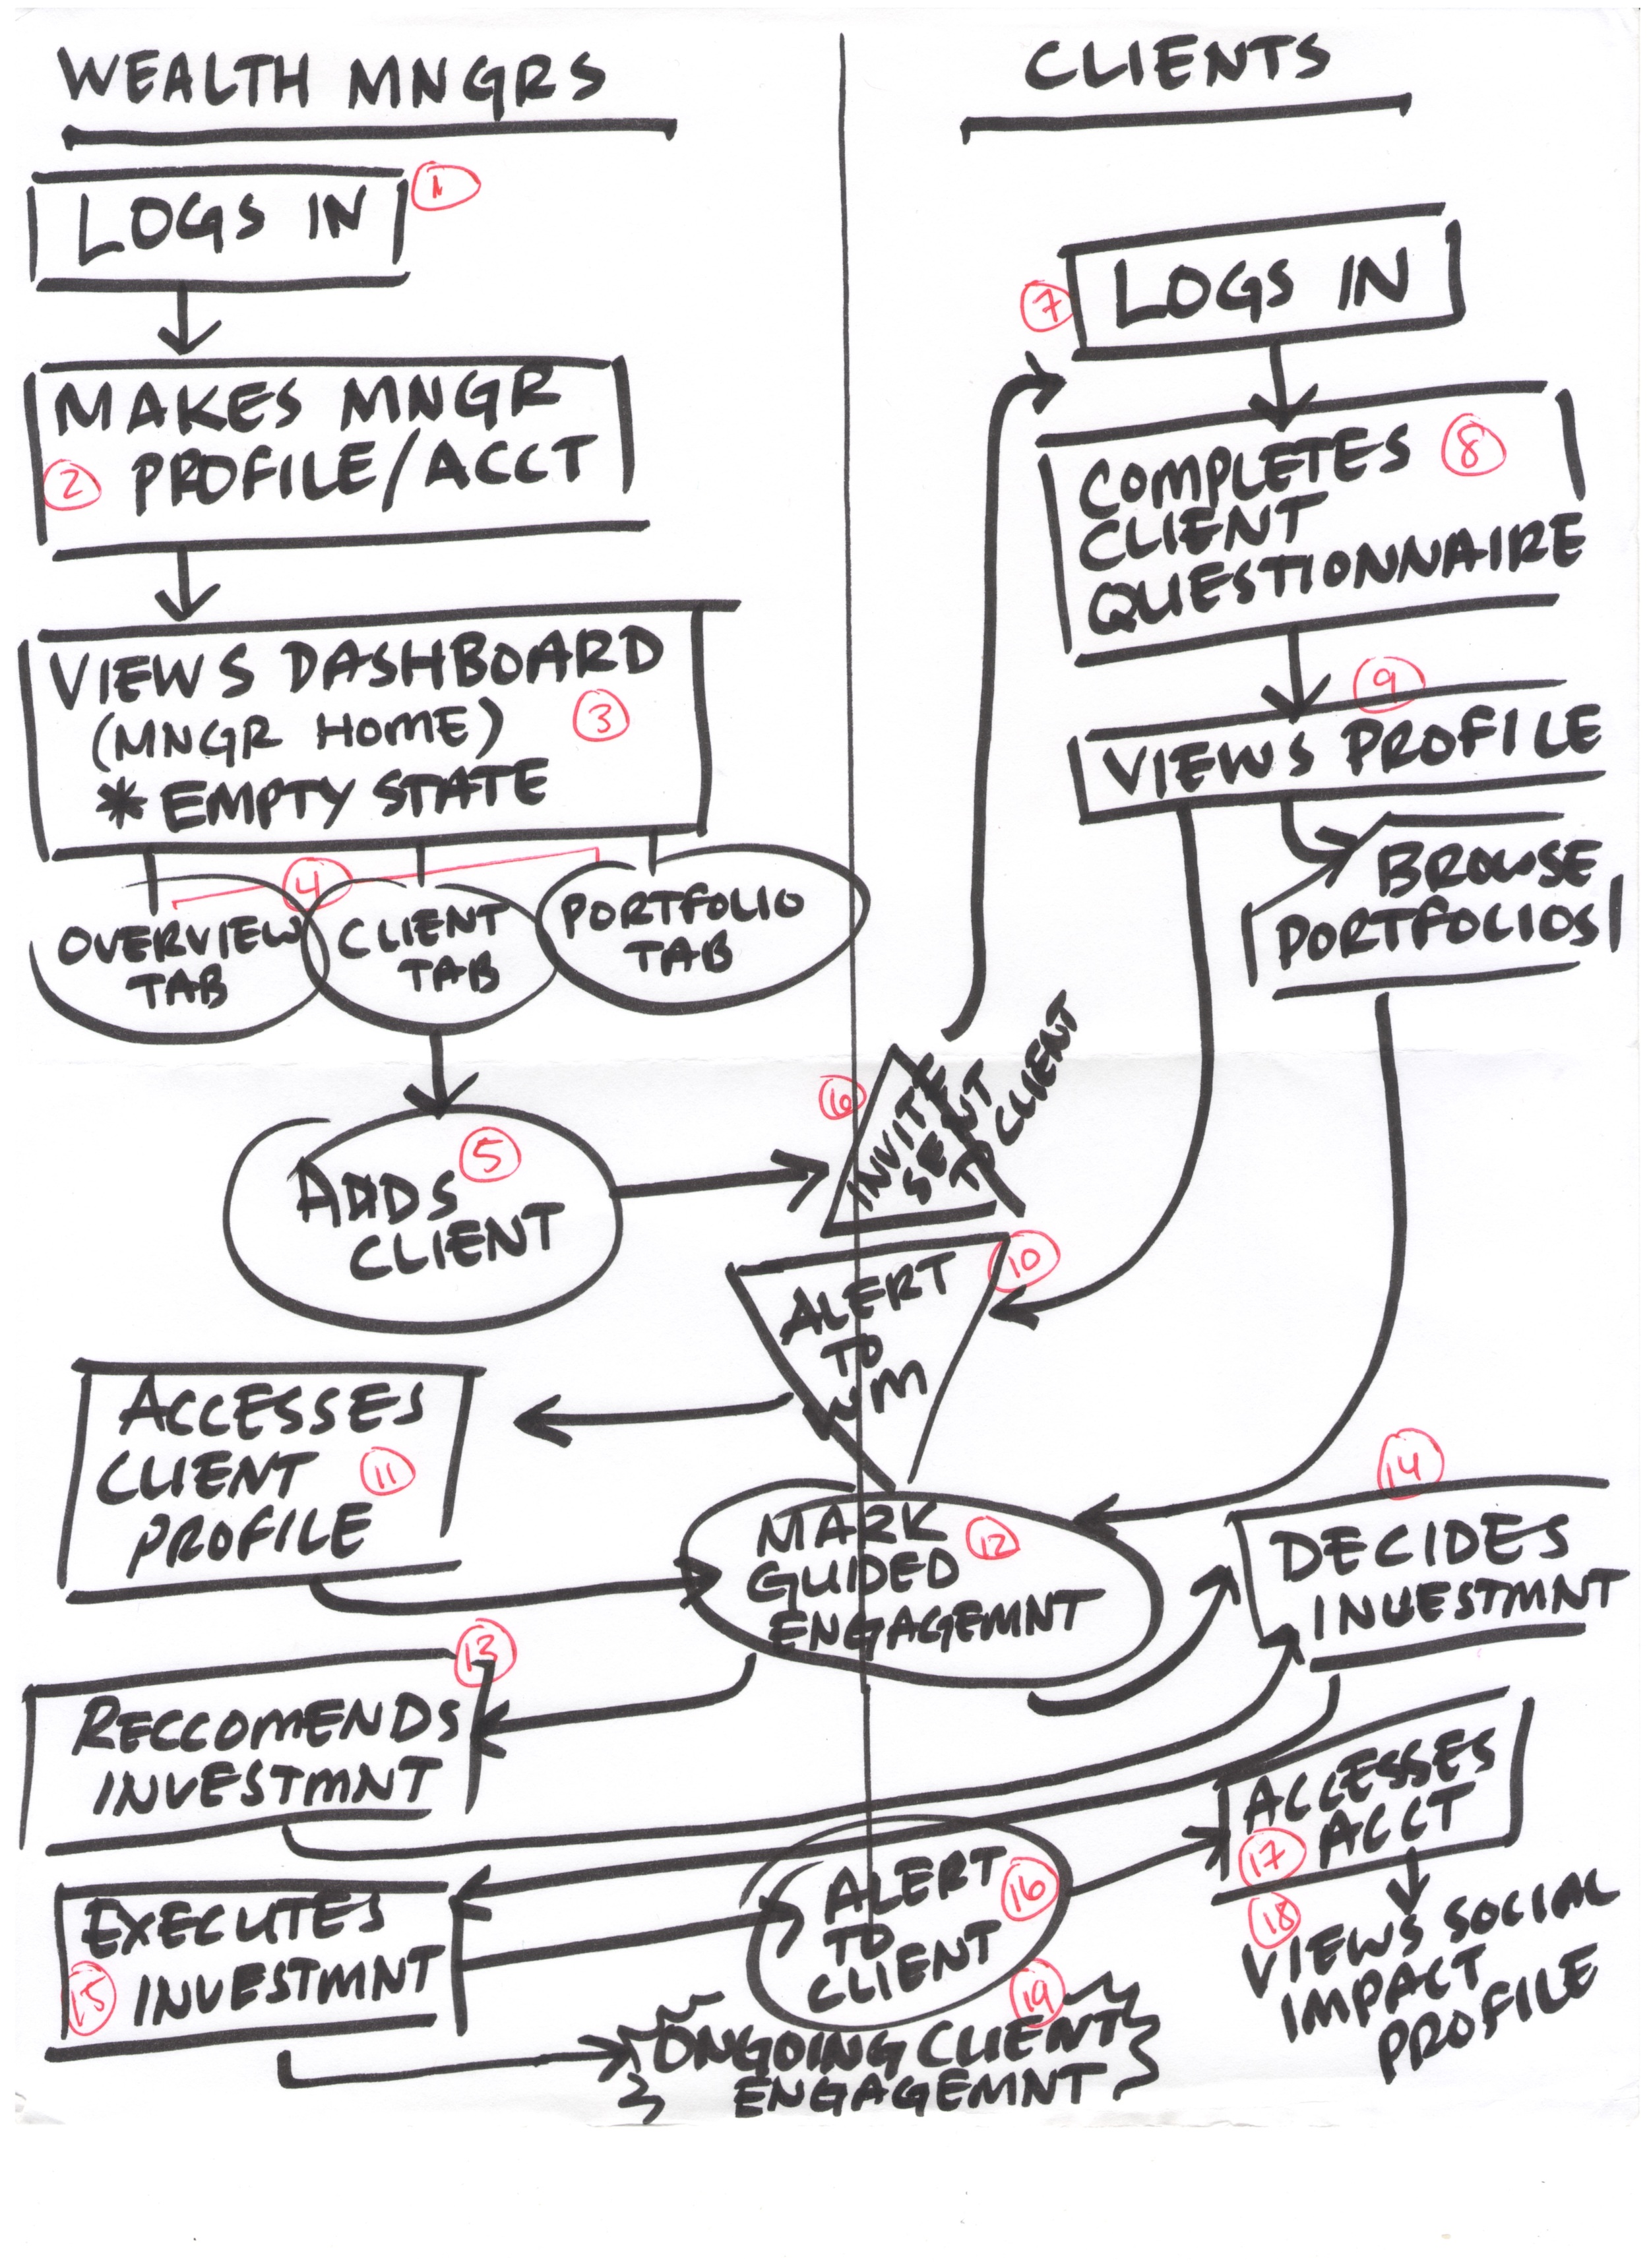 WEALTH MNGRS
1
LOGS IN
MAKES MNGR
2 PROFILE/ACCT
VIEWS DASHBOARD
(MNGR HOME) 3
* EMPTY STATE
4
OVERVIEW
TAB
CLIENT
TAB
PORTFOLIO
TAB
5
ADDS
CLIENT
6
INVITE
SENT
TO CLIENT
CLIENTS
7 LOGS IN
COMPLETES 8
CLIENT
QUESTIONNAIRE
9
VIEWS PROFILE
BROWSE
PORTFOLIOS
10
ALERT
TO
WM
ACCESSES
CLIENT 11
PROFILE
MARK 12
GUIDED
ENGAGEMNT
13
RECCOMENDS
INVESTMNT
14
DECIDES
INVESTMNT
EXECUTES
15 INVESTMNT
ALERT 16
TO
CLIENT
ACCESSES
17 ACCT
18
VIEWS SOCIAL
IMPACT
PROFILE
19
ONGOING CLIENT
ENGAGEMNT